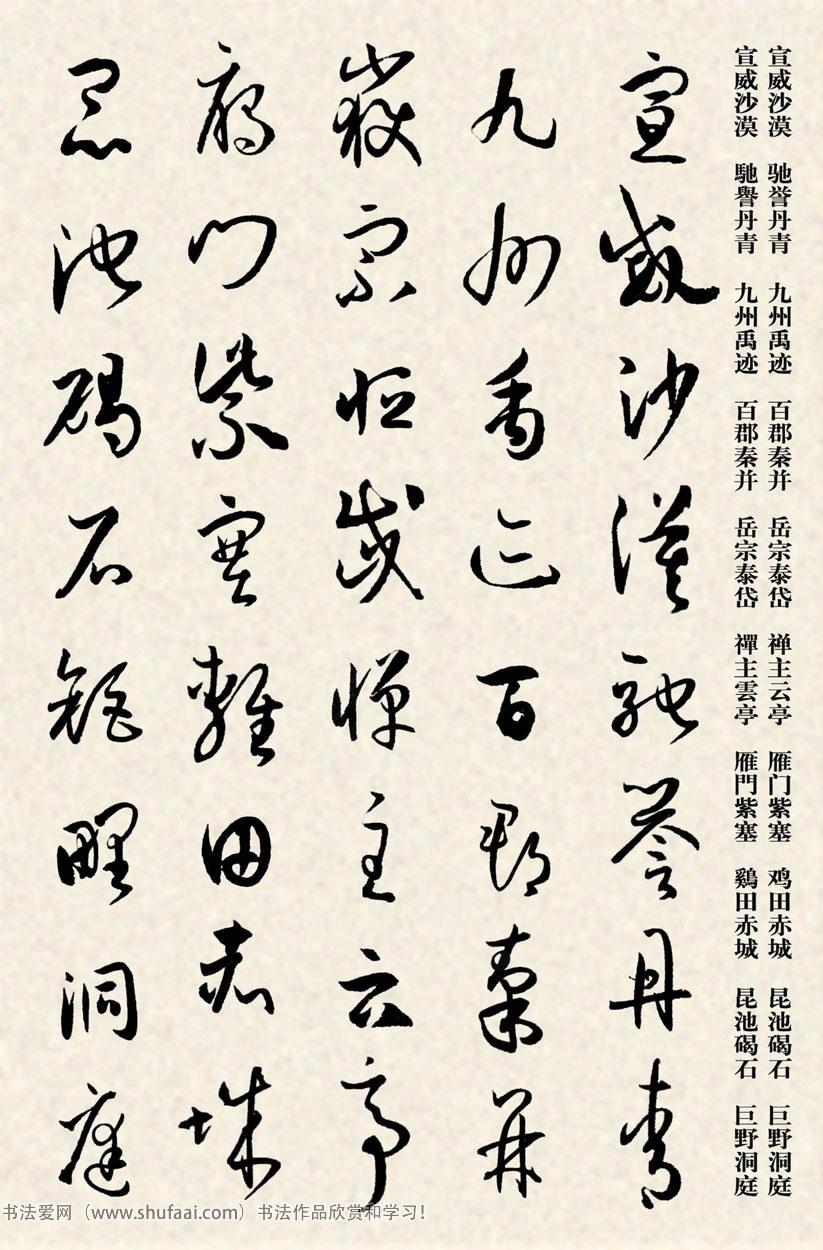 宣威沙漠 驰誉丹青 九州禹迹 百郡秦并 岳宗泰岱 禅主云亭 雁门紫塞 鸡田赤城 昆池碣石 巨野洞庭
宣威沙漠 馳譽丹青 九州禹迹 百郡秦并 岳宗泰岱 禪主雲亭 雁門紫塞 鷄田赤城 昆池碣石 巨野洞庭
宣威沙漠馳譽丹青
九州禹迹百郡秦并
嶽宗恒岱禪主云亭
雁門紫塞雞田赤城
昆池碣石鉅野洞庭
书法爱网（www.shufaai.com）书法作品欣赏和学习！